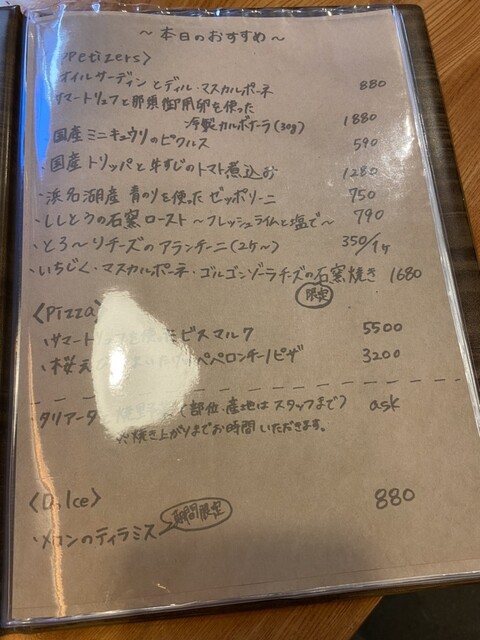 ～本日のおすすめ～
ppetizers〉
オイルサーディンとディル・マスカルポーネ 880
サマートリュフと那須御用卵を使った
冷製カルボナーラ(30g) 1880
・国産ミニキュウリのピクルス 590
・国産トリッパと牛すじのトマト煮込み 1280
・浜名湖産 青のりを使ったゼッポリーニ 750
・ししとうの石窯ロースト～フレッシュライムと塩で～ 790
・とろ～りチーズのアランチーニ(2ケ～) 350/1ケ
・いちじく・マスカルポーネ・ゴルゴンゾーラチーズの石窯焼き 1680
限定
〈Pizza
・サマートリュフを使ったビスマルク 5500
・桜 ペペロンチーノピザ 3200
・タリアータ (部位・産地はスタッフまで) ask
焼き上がりまでお時間いただきます。
〈Dolce〉
880
・メロンのティラミス 期間限定